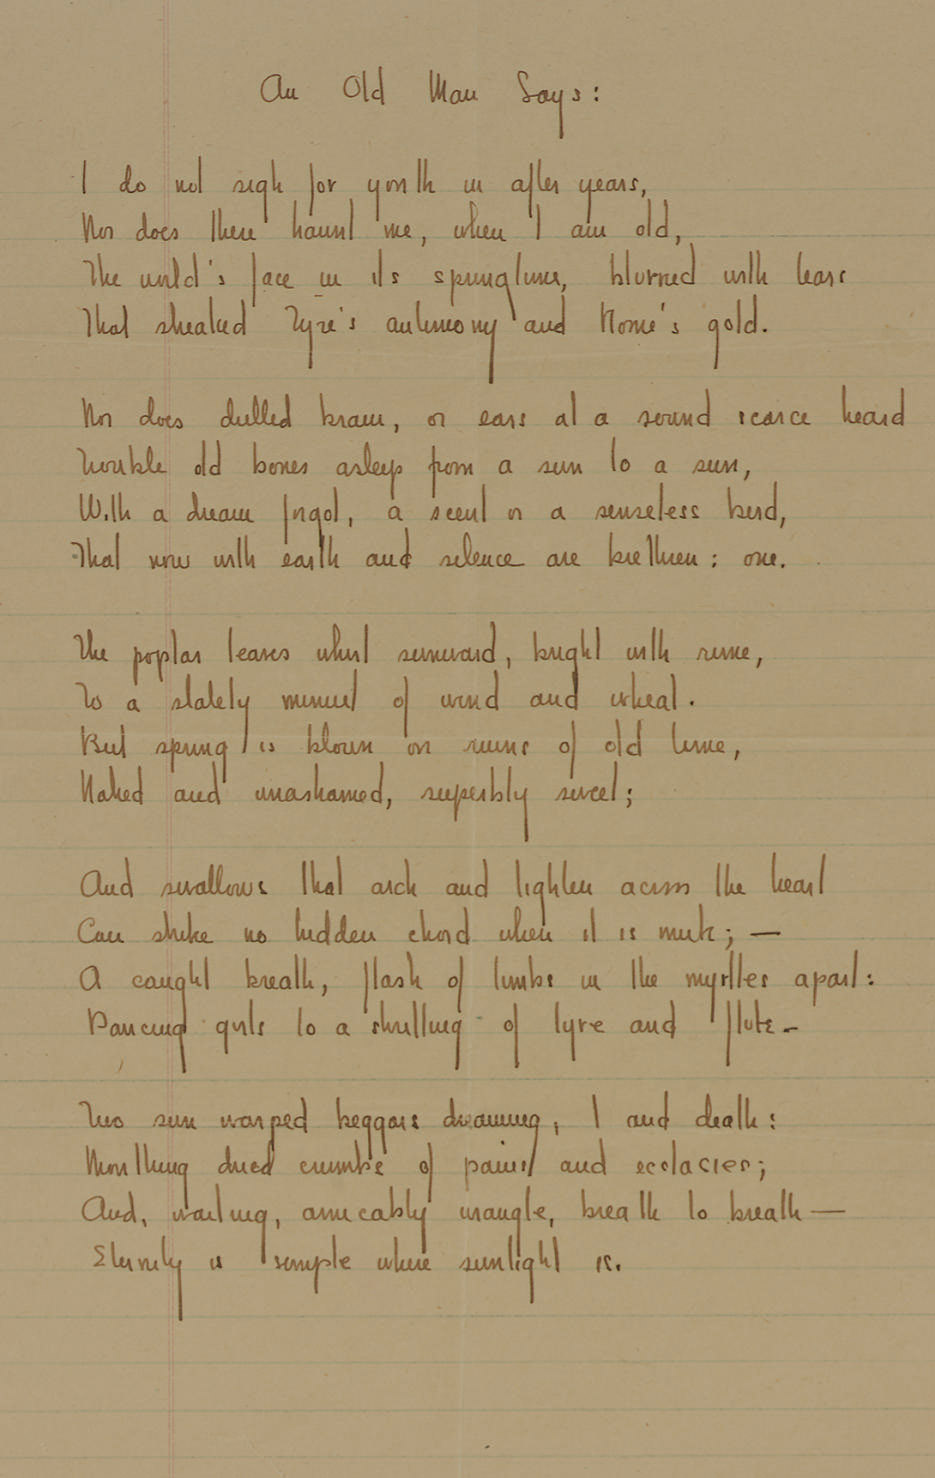 An Old Man Says:
I do not sigh for youth in after years,
Nor does there haunt me, when I am old,
The world's face in its springtime, blurred with tears
That streaked Tyre's antimony and Rome's gold.
Nor does dulled brain, or ears at a sound scarce heard
Trouble old bones asleep from a sun to a sun,
With a dream forgot, a scent or a senseless bird,
That now with earth and silence are brethren; one.
The poplar leaves whirl sunward, bright with rime,
To a stately minuet of wind and wheat.
But spring is blown on ruins of old time,
Naked and unashamed, superbly sweet;
And swallows that arch and lighten across the heart
Can strike no hidden chord when it is mute; —
A caught breath, flash of limbs in the myrtles apart:
Dancing girls to a shrilling of lyre and flute —
Two sun warped beggars dreaming, I and death:
Mouthing dried crumbs of pains and ecstacies;
And, waiting, amicably wrangle, breath to breath —
Eternity is simple where sunlight is.